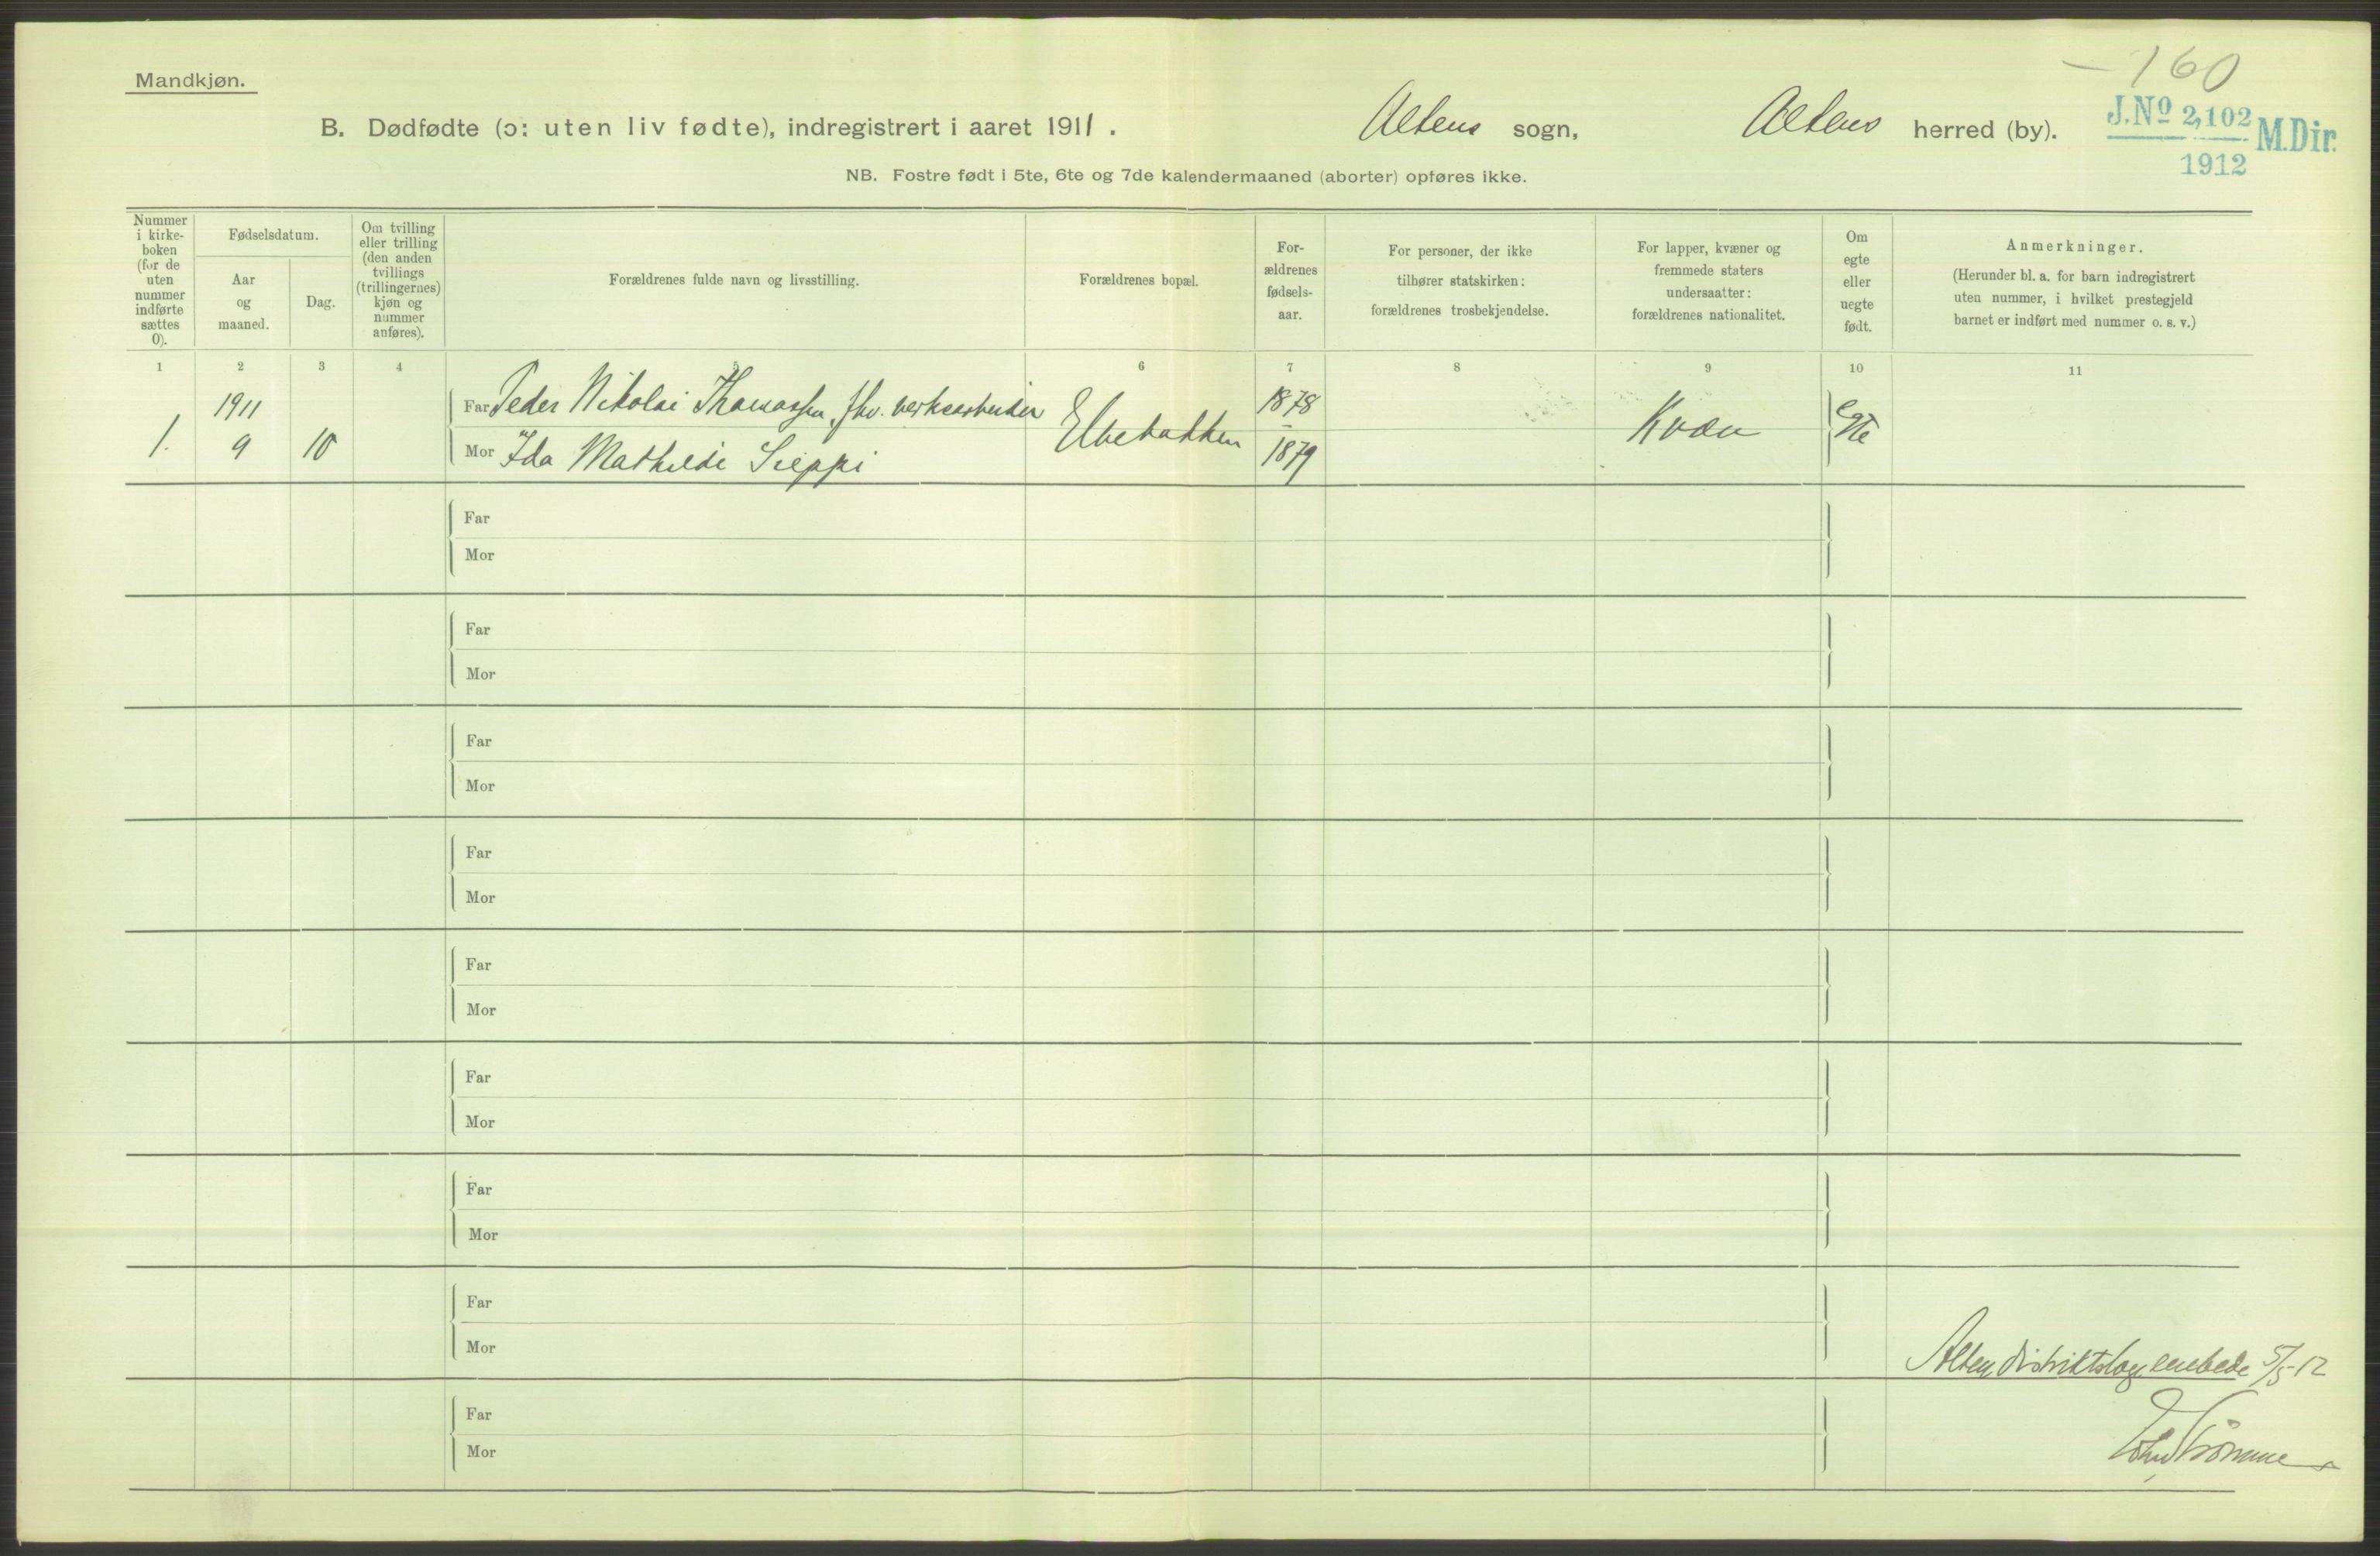 160
Mandkjøn.
B. Dødfødte (ɔ: uten liv fødte), indregistrert i aaret 1911. Altens sogn, Altens herred (by).
J.No 2,102 M.Dir.
1912
NB. Fostre født i 5te, 6te og 7de kalendermaaned (aborter) opføres ikke.
Nummer i kirke-
boken
(for de
uten
nummer
indførte
sættes
0).
Fødselsdatum.
Aar
og
maaned.
Dag.
Om tvilling
eller trilling
(den anden
tvillings
(trillingernes)
kjøn og
nummer
anføres).
Forældrenes fulde navn og livsstilling.
Forældrenes bopæl.
For-
ældrenes
fødsels-
aar.
For personer, der ikke
tilhører statskirken:
forældrenes trosbekjendelse.
For lapper, kvæner og
fremmede staters
undersaatter:
forældrenes nationalitet.
Om
egte
eller
uegte
født.
Anmerkninger.
(Herunder bl. a. for barn indregistrert
uten nummer, i hvilket prestegjeld
barnet er indført med nummer o. s. v.)
1 2 3 4 5 6 7 8 9 10 11
1. 1911 9 10
Far Peder Nikolai Thomassen, fhv. verksarbeider
Mor Ida Mathilde Sieppi
Elvebakken
1878
1879
Kvæn
egte
Far
Mor
Far
Mor
Far
Mor
Far
Mor
Far
Mor
Far
Mor
Far
Mor
Far
Mor
Alten distriktslægeembede 5/5-12
Far
Mor